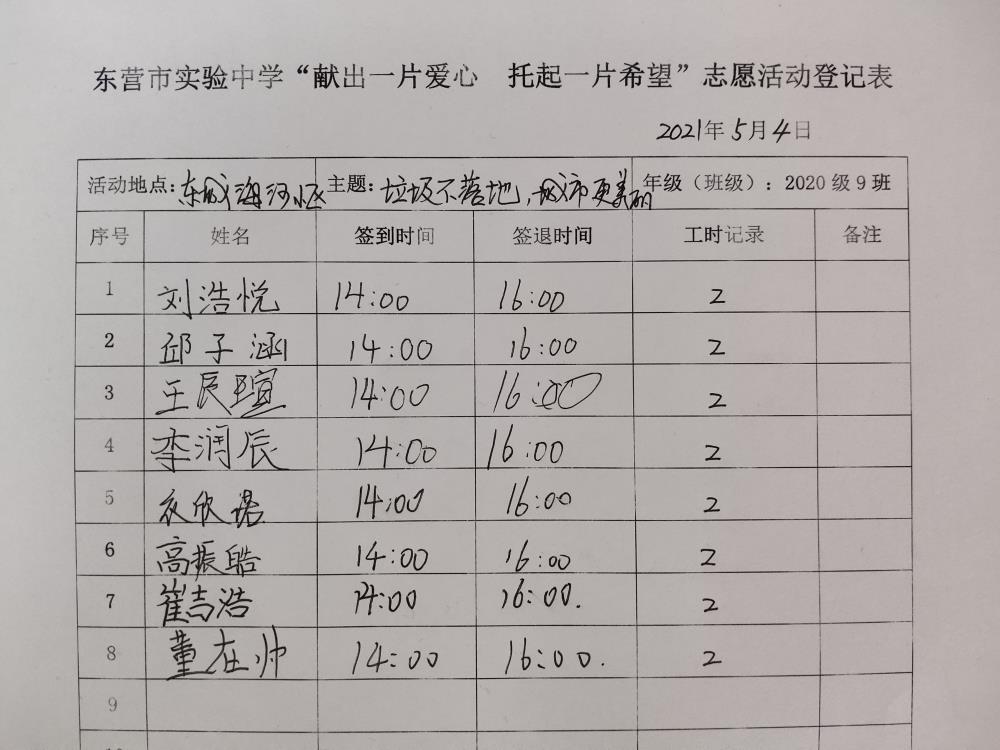 东营市实验中学“献出一片爱心 托起一片希望”志愿活动登记表
2021年5月4日
活动地点：东城海河小区 主题：垃圾不落地，城市更美丽 年级（班级）：2020级9班
序号 姓名 签到时间 签退时间 工时记录 备注
1 刘浩悦 14:00 16:00 2
2 邱子涵 14:00 16:00 2
3 王辰瑄 14:00 16:00 2
4 李润辰 14:00 16:00 2
5 衣欣诺 14:00 16:00 2
6 高振皓 14:00 16:00 2
7 崔吉浩 14:00 16:00. 2
8 董在帅 14:00 16:00. 2
9